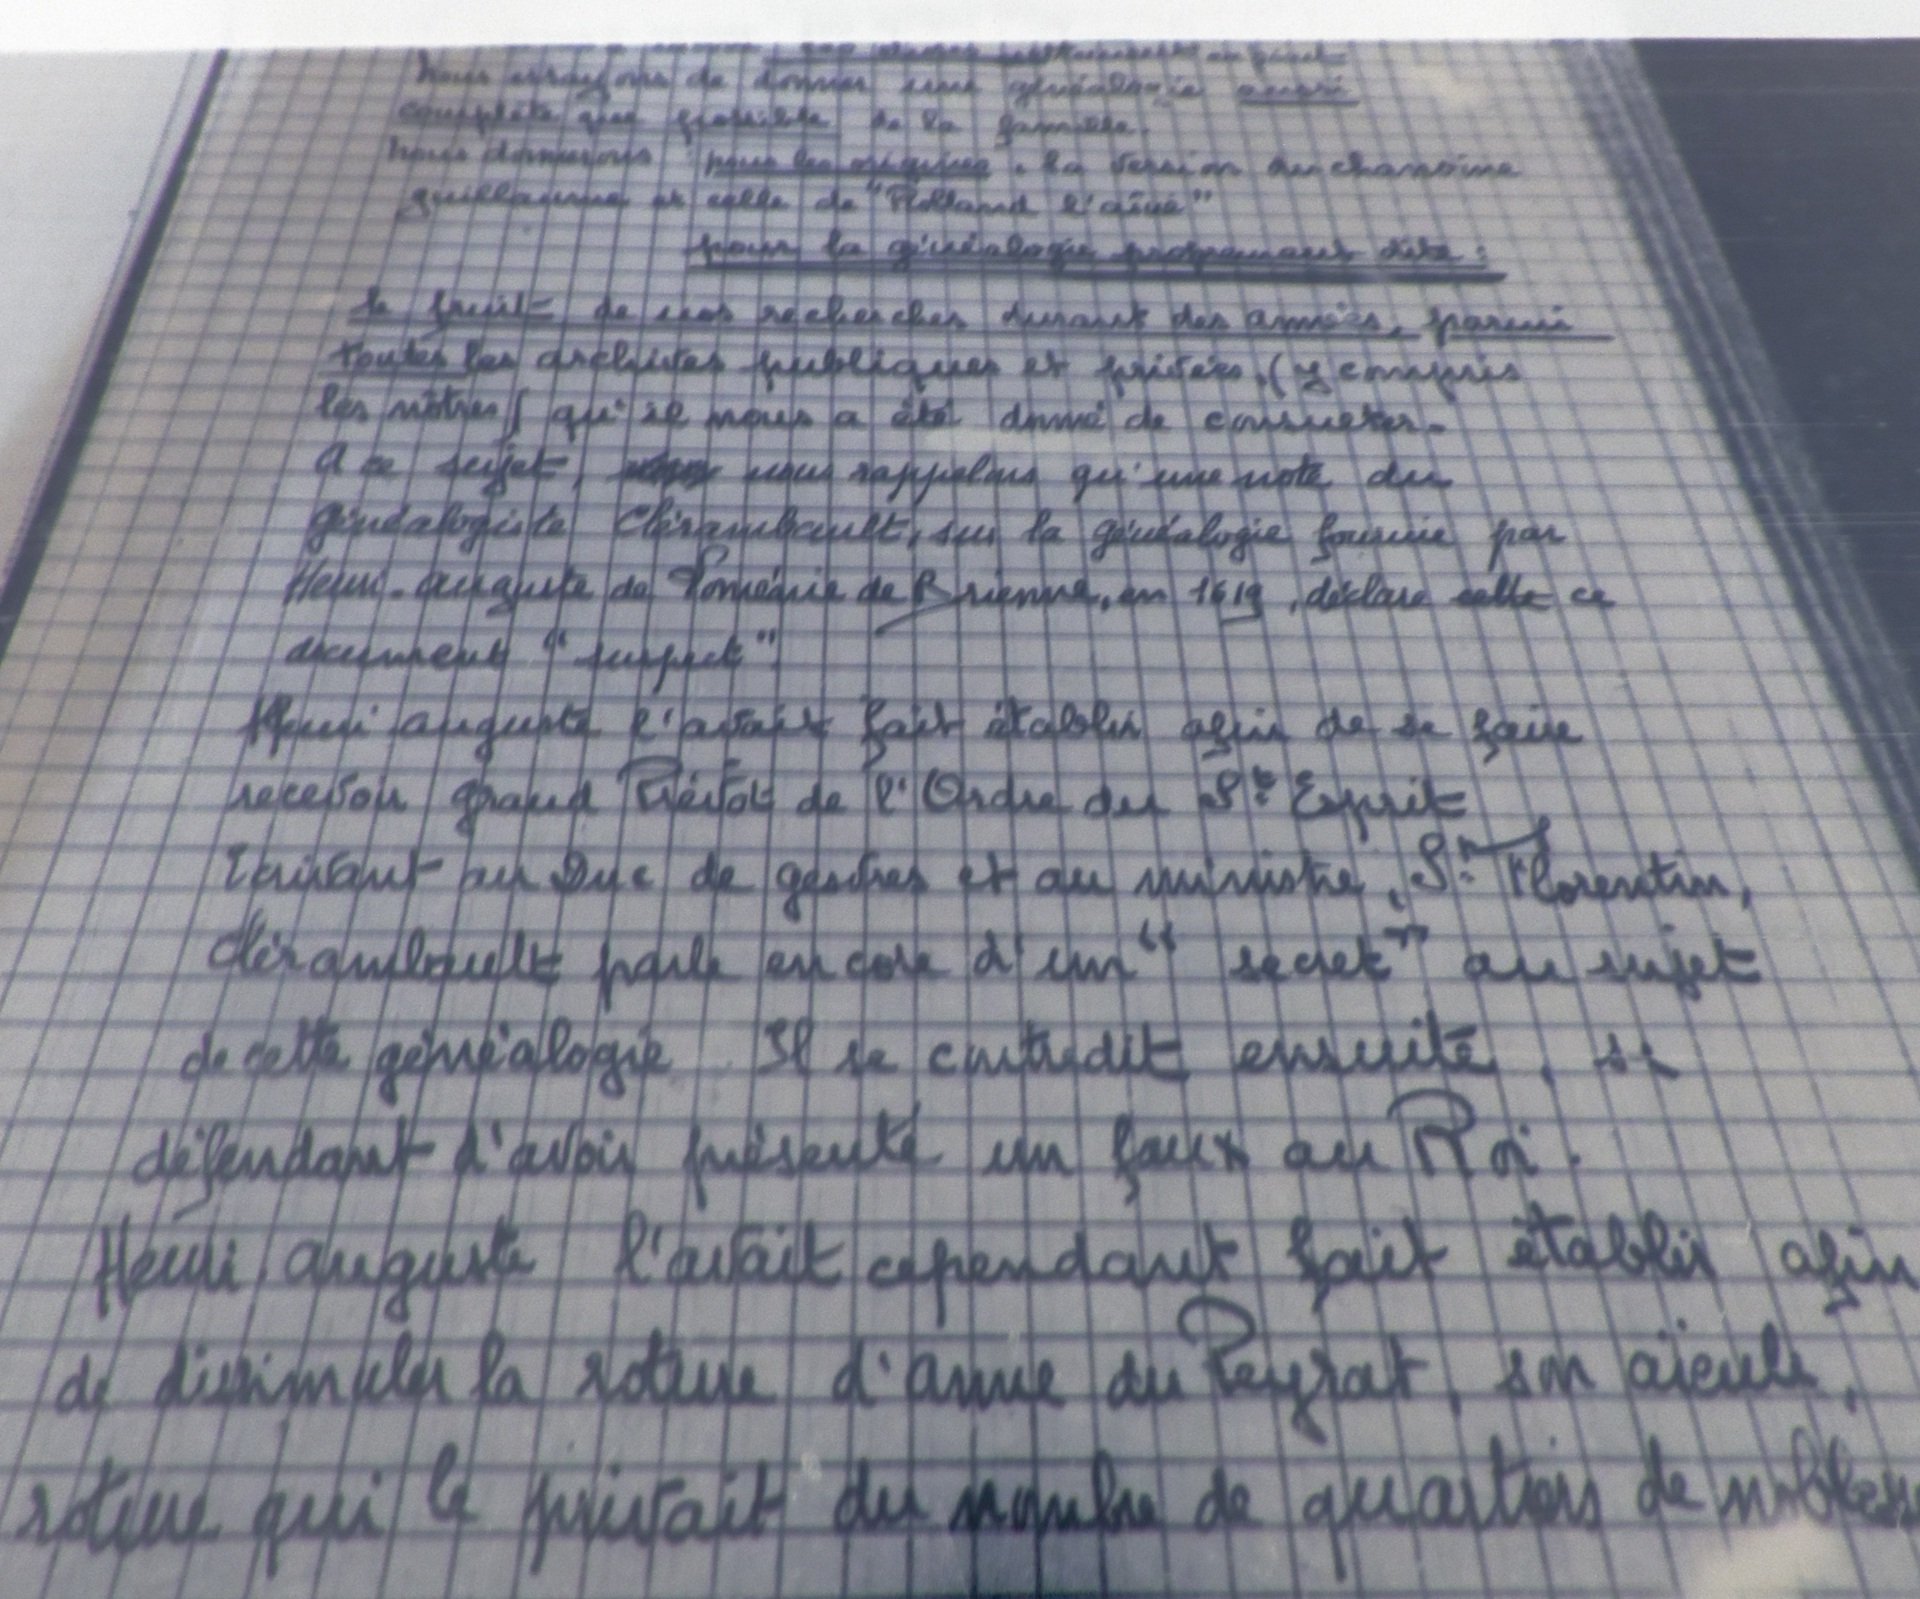 Nous essayons de donner une généalogie aussi
complète que possible de la famille.
Nous donnerons pour les origines, la version du chanoine
guillaume et celle de "Rolland l'aîné"
pour la généalogie proprement dite :
le fruit de nos recherches durant des années, parmi
toutes les archives publiques et privées, (y compris
les nôtres) qu'il nous a été donné de consulter.
A ce sujet, nous rappelons qu'une note du
généalogiste Clérambault, sur la généalogie fournie par
Henri-auguste de Loménie de Brienne, en 1619, déclare celle ce
document "suspect".
Henri auguste l'avait fait établir afin de se faire
recevoir grand Prévôt de l'Ordre du St Esprit
Ecrivant au Duc de gesvres et au ministre, St Florentin,
Clérambault parle encore d'un "secret" au sujet
de cette généalogie Il se contredit ensuite, se
défendant d'avoir présenté un faux au Roi.
Henri auguste l'avait cependant fait établir afin
de dissimuler la roture d'Anne du Peyrat, son aïeule,
roture qui le privait du nombre de quartiers de noblesse